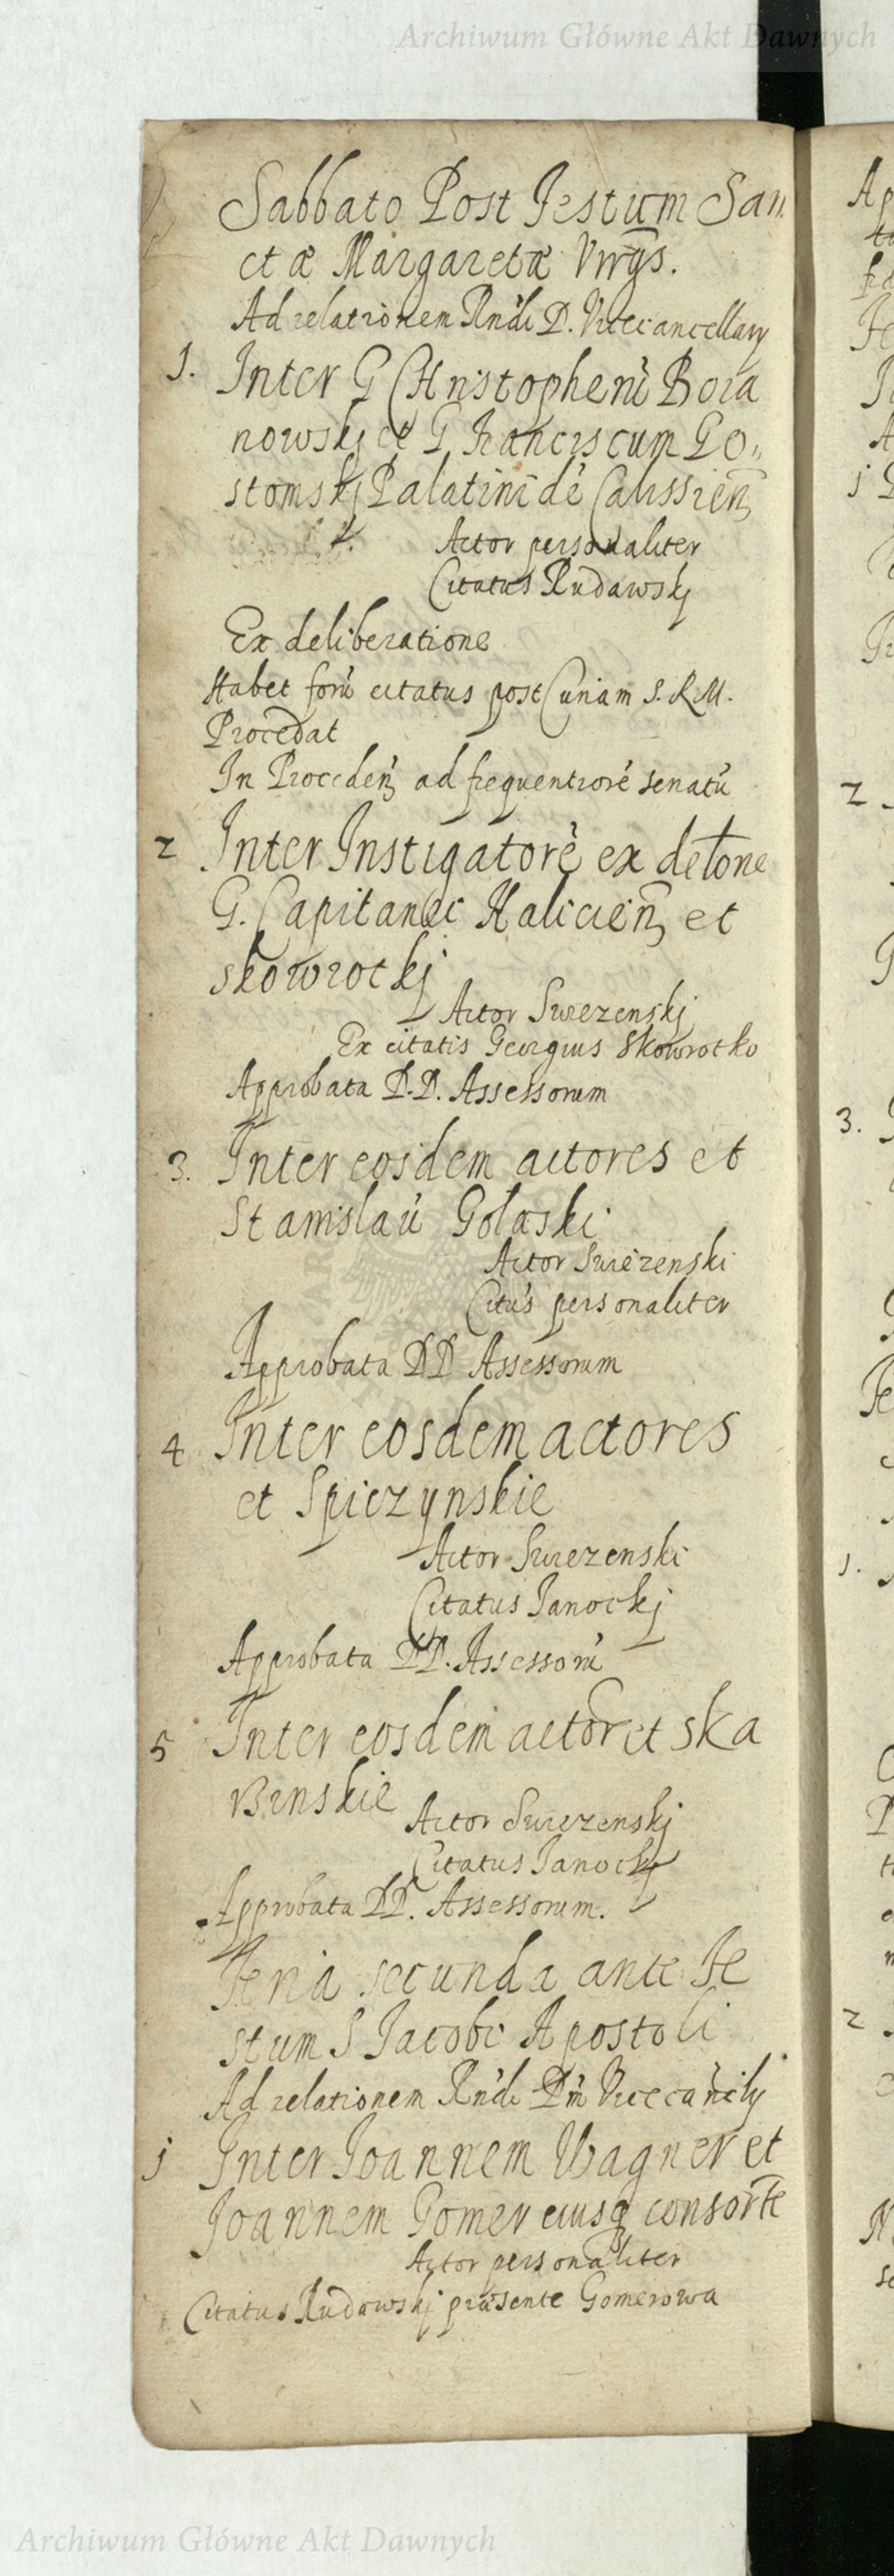 Archiwum Główne Akt Dawnych
Sabbato Post Festum San
ctæ Margaretæ Virgīs.
Ad relationem Rndi D. Vicecancellary
1. Inter G Christopherū Boia
nowskj et G Franciscum Go„
stomskj Palatinidē Calissień
Actor personaliter
Citatus Rudawskj
Ex deliberatione
Habet forū citatus post Curiam S. R. M.
Procedat
In Proceden ad frequentiorē senatū
2 Inter Instigatorē ex deltone
G. Capitanei Halicień et
skowrotkj
Actor Swiezenskj
Ex citatis Georgius Skowrotko
Approbata D.D. Assessorum
3. Inter eosdem actores et
Stanislaū Golaski
Actor Swiezenski
Citūs personaliter
Approbata DD Assessorum
4 Inter eosdem actores
et Spiczynskie
Actor Swiezenski
Citatus Janockj
Approbata DD. Assessorū
5 Inter eosdem actor et ska
Binskie
Actor Swiezenskj
Citatus Janockj
Approbata DD. Assessorum.
Feria secunda ante Fe
stum S Jacobi Apostoli
Ad relationem Rndi Dni Vicecancily
1 Inter Joannem Wagner et
Joannem Gomer eiusq consorte
Actor personaliter
Citatus Rudowskj præsente Gomerowa
Archiwum Główne Akt Dawnych